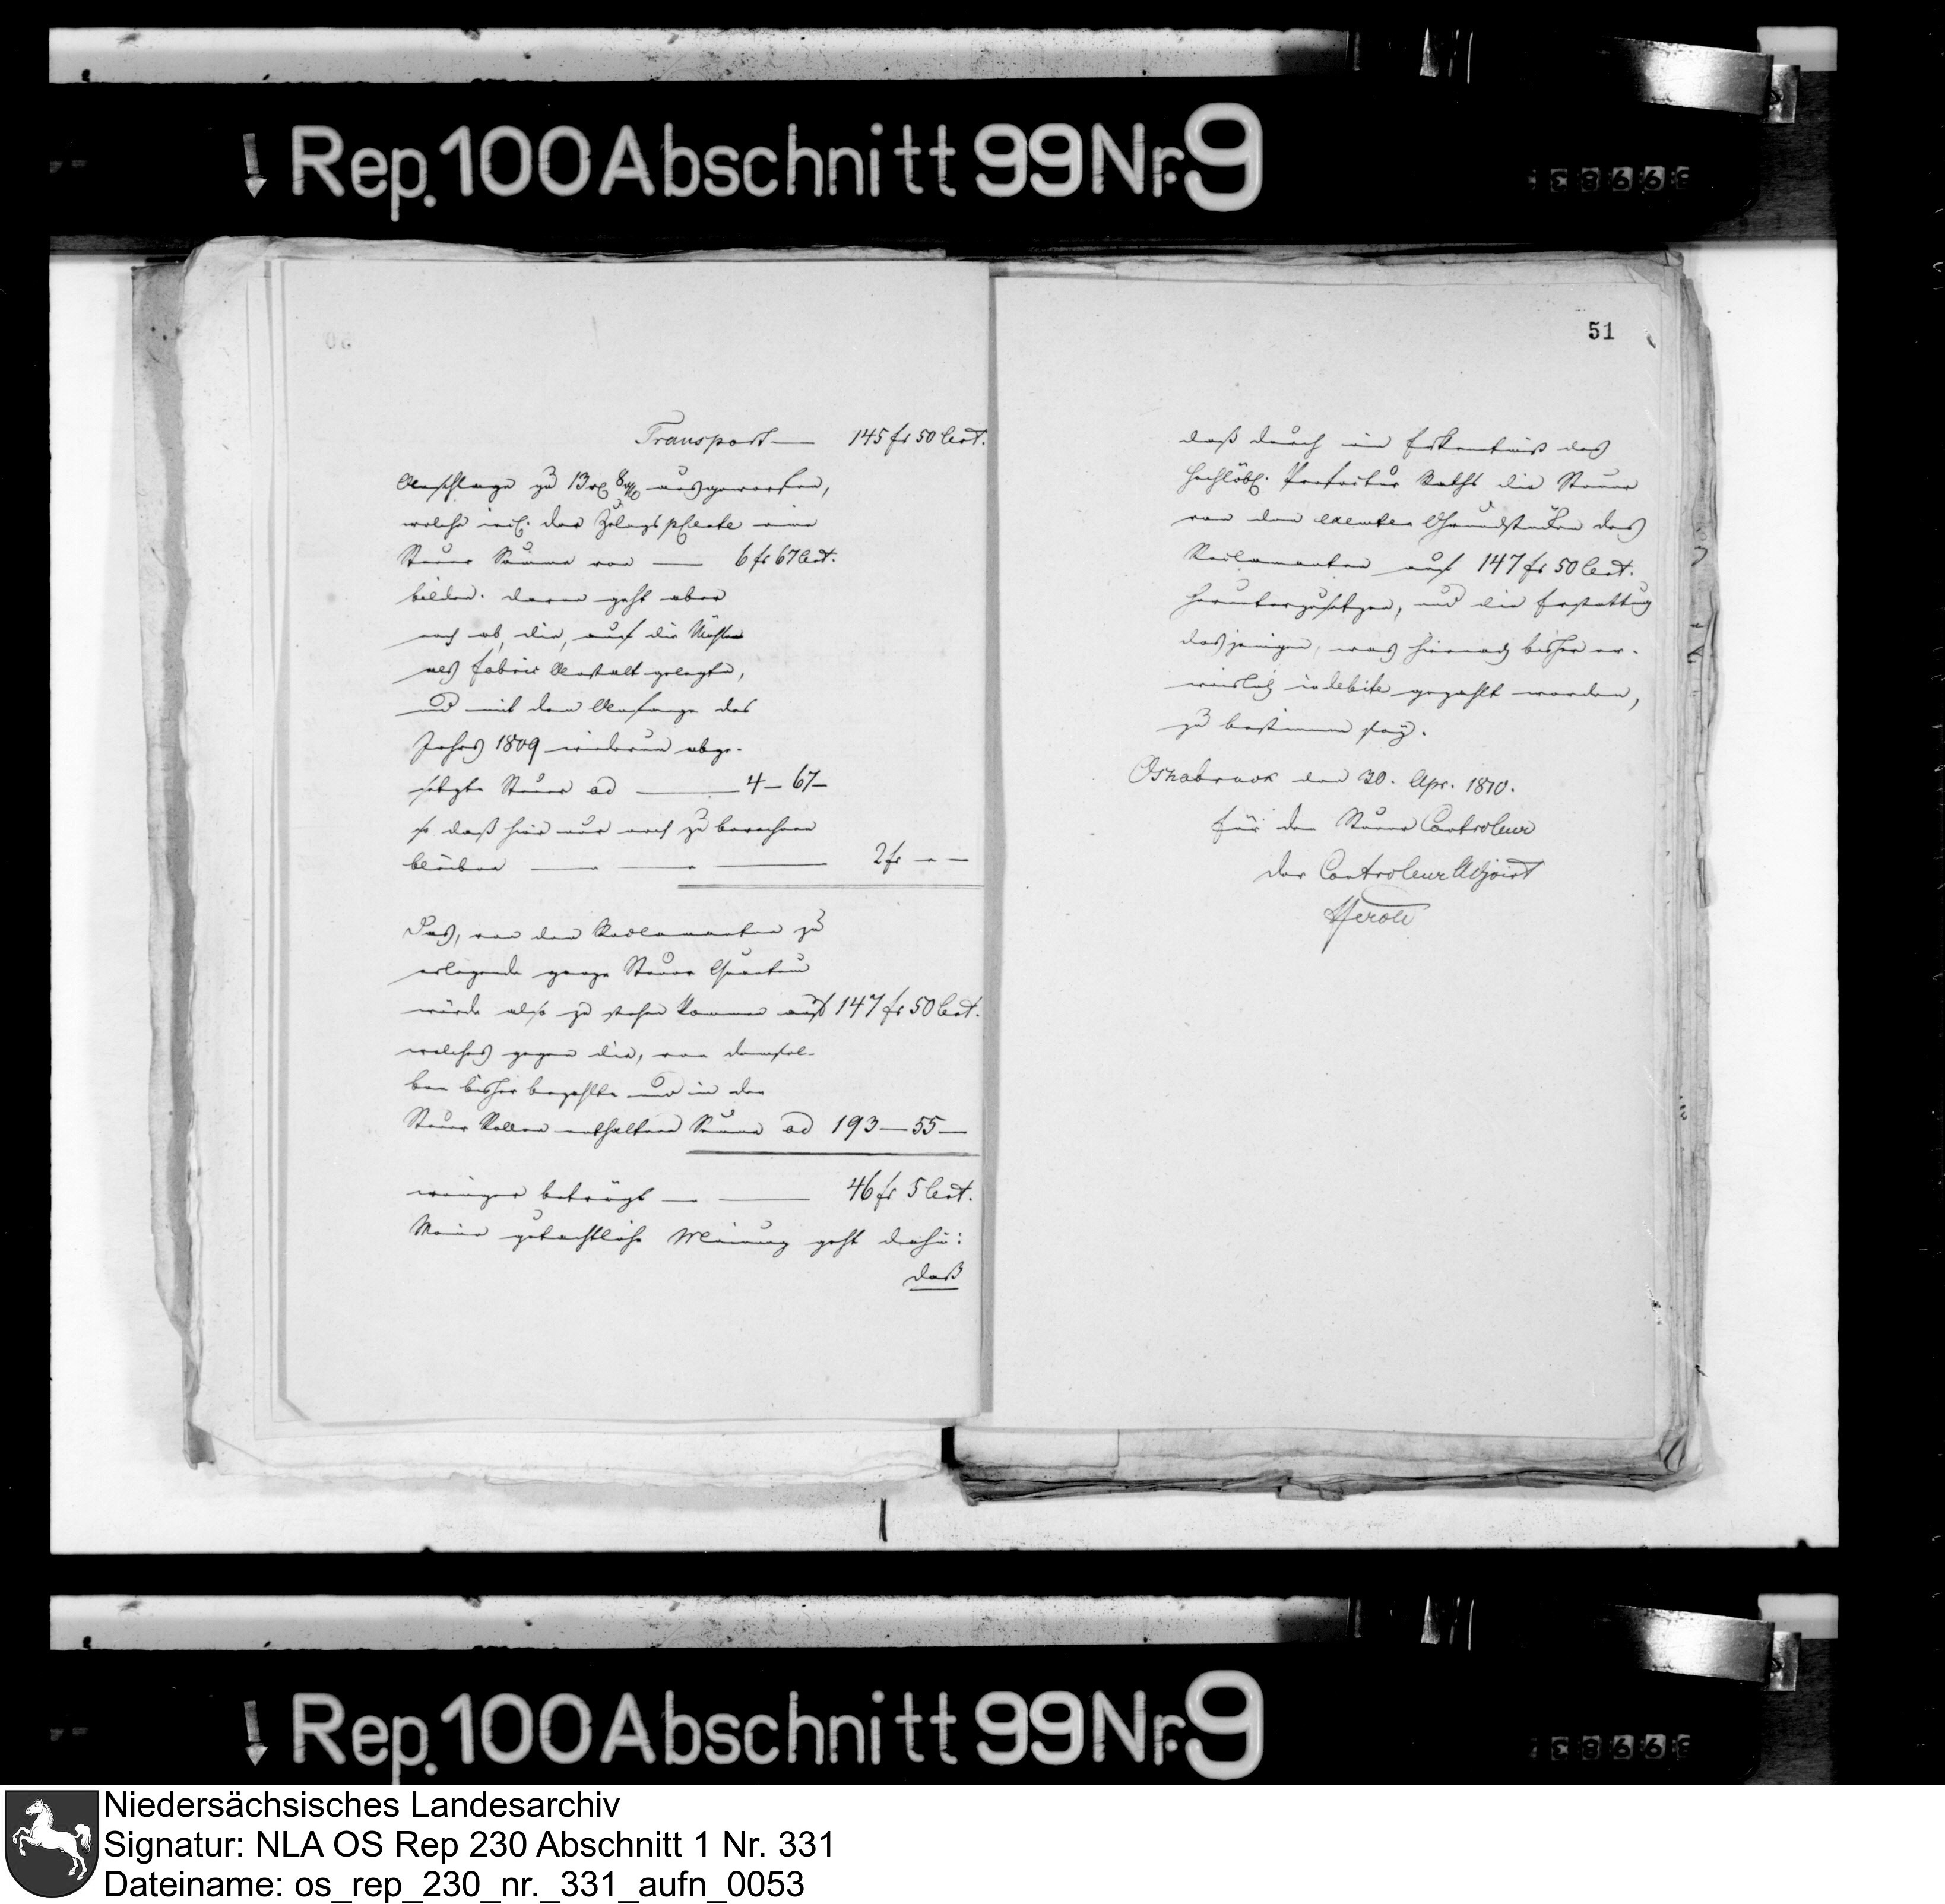 Rep. 100 Abschnitt 99 Nr. 9
Transport — 145 fr 50 Cent.
Anschlage zu 13 rt 8 ausgeworfen,
welche incl. der Zulags pfente eine
Steuer Summe von — 6 fr 67 Cent.
bilden. davon geht aber
noch ab, die, auf die Mühle
als fabric Anstalt gelegte,
und mit dem Anfange des
Jahrs 1809 wiederum abge-
setzte Steuer ad — 4 – 67 –
so daß hier nur noch zu berechnen
bleiben — — — 2 fr – –
Das, von dem Reclamanten zu
erlegende ganze Steuer Quantum
würde also zu stehen kommen auf 147 fr 50 Cent.
welches gegen die, von demsel-
ben bisher bezahlte und in den
Steuer Rollen enthaltene Summe ad 193 – 55 –
weniger beträgt — — 46 fr 5 Cent.
Meine gutachtliche Meinung geht dahin:
daß
51
daß durch ein Erkentniß des
hochlöbl. Prefectur Raths die Steuer
von den exemten Grundstücken des
Reclamanten auf 147 fr 50 Cent.
herunterzusetzen, und die Erstattung
desjenigen, was hiernach bisher er-
weislich indebite gezahlt worden,
zu bestimmen sey.
Osnabrück den 30. Apr. 1810.
für den Steuer Controleur
der Controleur Adjoint
Rep. 100 Abschnitt 99 Nr. 9
Niedersächsisches Landesarchiv
Signatur: NLA OS Rep 230 Abschnitt 1 Nr. 331
Dateiname: os_rep_230_nr._331_aufn_0053